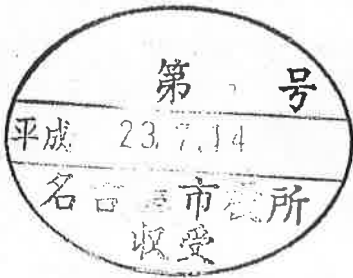 第 号
平成 23.7.14
名古 市役所
収受